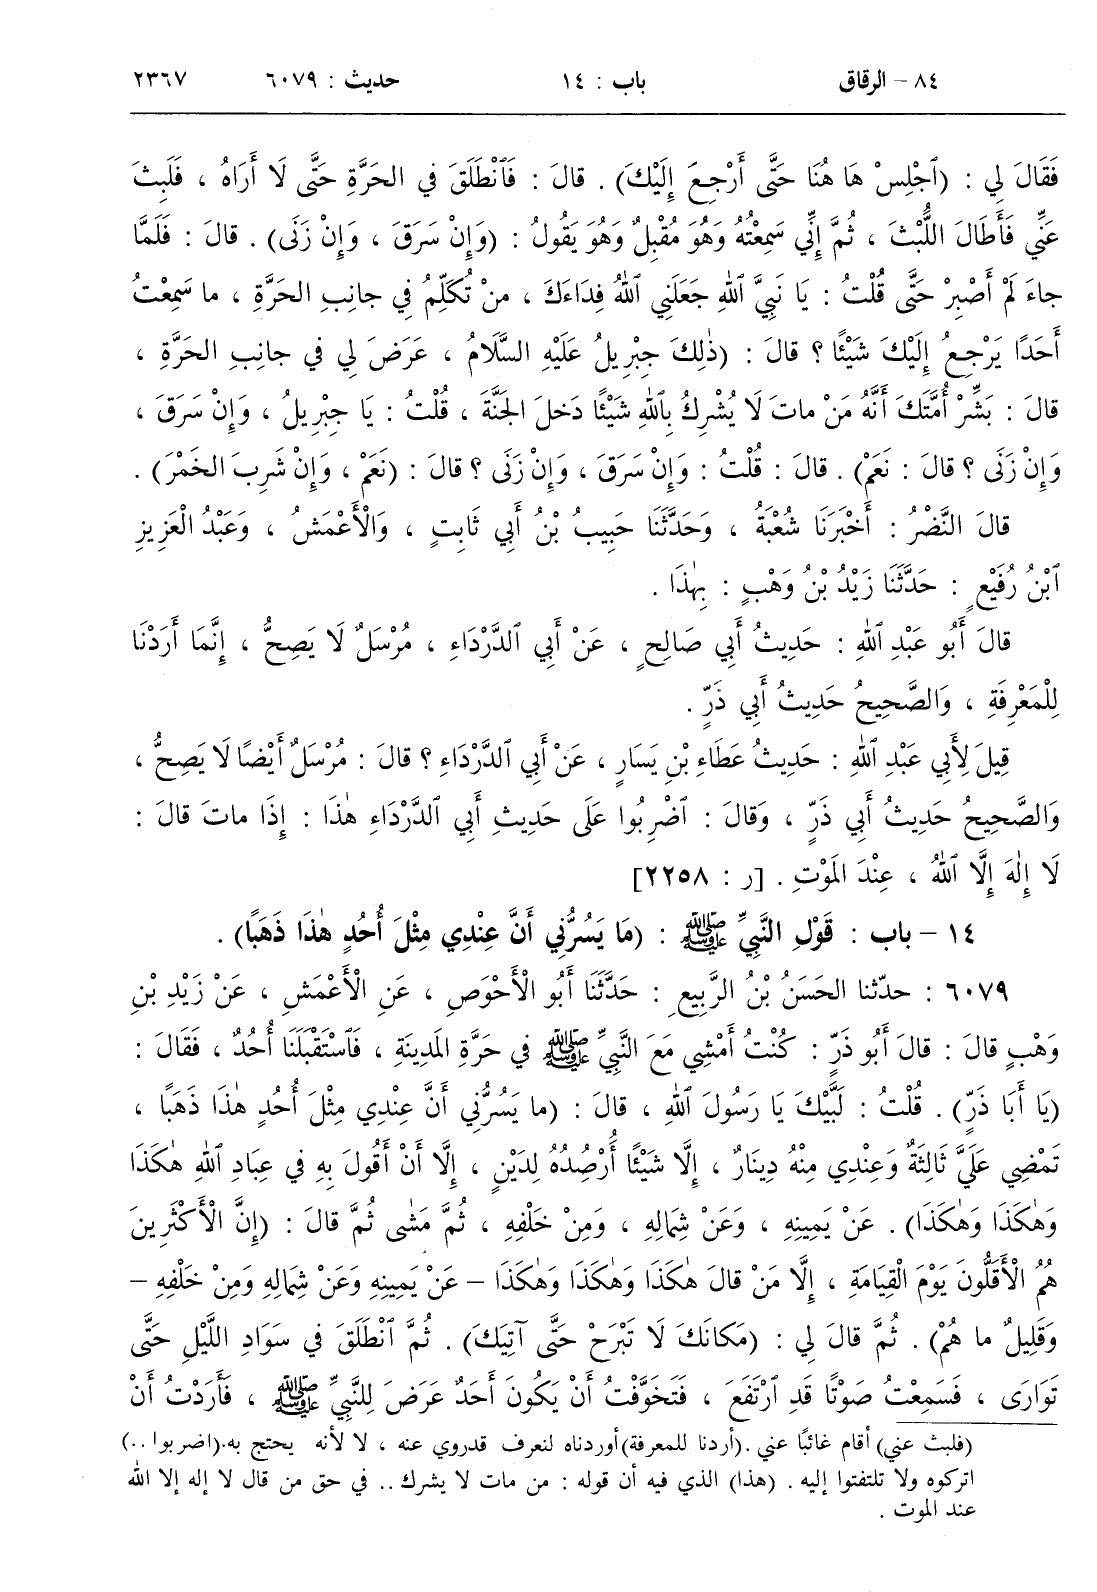 ٨٤ – الرقاق باب : ١٤ حديث : ٦٠٧٩ ٢٣٦٧
فَقَالَ لِي : (ٱجْلِسْ هَا هُنَا حَتَّى أَرْجِعَ إِلَيْكَ) . قالَ : فَٱنْطَلَقَ في الحَرَّةِ حَتَّى لَا أَرَاهُ ، فَلَبِثَ
عَنِّي فَأَطَالَ اللُّبْثَ ، ثُمَّ إِنِّي سَمِعْتُهُ وَهُوَ مُقْبِلٌ وَهُوَ يَقُولُ : (وَإِنْ سَرَقَ ، وَإِنْ زَنَى) . قالَ : فَلَمَّا
جاءَ لَمْ أَصْبِرْ حَتَّى قُلْتُ : يَا نَبِيَّ ٱللهِ جَعَلَنِي ٱللهُ فِدَاءَكَ ، مَنْ تُكَلِّمُ في جانِبِ الحَرَّةِ ، ما سَمِعْتُ
أَحَدًا يَرْجِعُ إِلَيْكَ شَيْئًا ؟ قالَ : (ذٰلِكَ جِبْرِيلُ عَلَيْهِ السَّلَامُ ، عَرَضَ لِي في جانِبِ الحَرَّةِ ،
قالَ : بَشِّرْ أُمَّتَكَ أَنَّهُ مَنْ ماتَ لَا يُشْرِكُ بِٱللهِ شَيْئًا دَخَلَ الجَنَّةَ ، قُلْتُ : يَا جِبْرِيلُ ، وَإِنْ سَرَقَ ،
وَإِنْ زَنَى ؟ قالَ : نَعَمْ) . قالَ : قُلْتُ : وَإِنْ سَرَقَ ، وَإِنْ زَنَى ؟ قالَ : (نَعَمْ ، وَإِنْ شَرِبَ الخَمْرَ) .
قالَ النَّضْرُ : أَخْبَرَنَا شُعْبَةُ ، وَحَدَّثَنَا حَبِيبُ بْنُ أَبِي ثَابِتٍ ، وَالْأَعْمَشُ ، وَعَبْدُ الْعَزِيزِ
ٱبْنُ رُفَيْعٍ : حَدَّثَنَا زَيْدُ بْنُ وَهْبٍ : بِهٰذَا .
قالَ أَبُو عَبْدِ ٱللهِ : حَدِيثُ أَبِي صَالِحٍ ، عَنْ أَبِي ٱلدَّرْدَاءِ ، مُرْسَلٌ لَا يَصِحُّ ، إِنَّمَا أَرَدْنَا
لِلْمَعْرِفَةِ ، وَالصَّحِيحُ حَدِيثُ أَبِي ذَرٍّ .
قِيلَ لِأَبِي عَبْدِ ٱللهِ : حَدِيثُ عَطَاءِ بْنِ يَسَارٍ ، عَنْ أَبِي ٱلدَّرْدَاءِ ؟ قالَ : مُرْسَلٌ أَيْضًا لَا يَصِحُّ ،
وَالصَّحِيحُ حَدِيثُ أَبِي ذَرٍّ ، وَقالَ : ٱضْرِبُوا عَلَى حَدِيثِ أَبِي ٱلدَّرْدَاءِ هٰذَا : إِذَا ماتَ قالَ :
لَا إِلٰهَ إِلَّا ٱللهُ ، عِنْدَ المَوْتِ . [ر : ٢٢٥٨]
١٤ – باب : قَوْلِ النَّبِيِّ ﷺ : (مَا يَسُرُّنِي أَنَّ عِنْدِي مِثْلَ أُحُدٍ هٰذَا ذَهَبًا) .
٦٠٧٩ : حدّثنا الحَسَنُ بْنُ الرَّبِيعِ : حَدَّثَنَا أَبُو الْأَحْوَصِ ، عَنِ الْأَعْمَشِ ، عَنْ زَيْدِ بْنِ
وَهْبٍ قالَ : قالَ أَبُو ذَرٍّ : كُنْتُ أَمْشِي مَعَ النَّبِيِّ ﷺ في حَرَّةِ المَدِينَةِ ، فَٱسْتَقْبَلَنَا أُحُدٌ ، فَقَالَ :
(يَا أَبَا ذَرٍّ) . قُلْتُ : لَبَّيْكَ يَا رَسُولَ ٱللهِ ، قالَ : (ما يَسُرُّنِي أَنَّ عِنْدِي مِثْلَ أُحُدٍ هٰذَا ذَهَبًا ،
تَمْضِي عَلَيَّ ثَالِثَةٌ وَعِنْدِي مِنْهُ دِينَارٌ ، إِلَّا شَيْئًا أُرْصِدُهُ لِدَيْنٍ ، إِلَّا أَنْ أَقُولَ بِهِ في عِبَادِ ٱللهِ هٰكَذَا
وَهٰكَذَا وَهٰكَذَا) . عَنْ يَمِينِهِ ، وَعَنْ شِمَالِهِ ، وَمِنْ خَلْفِهِ ، ثُمَّ مَشَى ثُمَّ قالَ : (إِنَّ الْأَكْثَرِينَ
هُمُ الْأَقَلُّونَ يَوْمَ الْقِيَامَةِ ، إِلَّا مَنْ قالَ هٰكَذَا وَهٰكَذَا وَهٰكَذَا – عَنْ يَمِينِهِ وَعَنْ شِمَالِهِ وَمِنْ خَلْفِهِ –
وَقَلِيلٌ ما هُمْ) . ثُمَّ قالَ لِي : (مَكانَكَ لَا تَبْرَحْ حَتَّى آتِيَكَ) . ثُمَّ ٱنْطَلَقَ في سَوَادِ اللَّيْلِ حَتَّى
تَوَارَى ، فَسَمِعْتُ صَوْتًا قَدِ ٱرْتَفَعَ ، فَتَخَوَّفْتُ أَنْ يَكُونَ أَحَدٌ عَرَضَ لِلنَّبِيِّ ﷺ ، فَأَرَدْتُ أَنْ
(فلبث عني) أقام غائبًا عني .(أردنا للمعرفة)أوردناه لنعرف قدروي عنه ، لا لأنه يحتج به.(اضربوا ..)
اتركوه ولا تلتفتوا إليه . (هذا) الذي فيه أن قوله : من مات لا يشرك .. في حق من قال لا إله إلا الله
عند الموت .